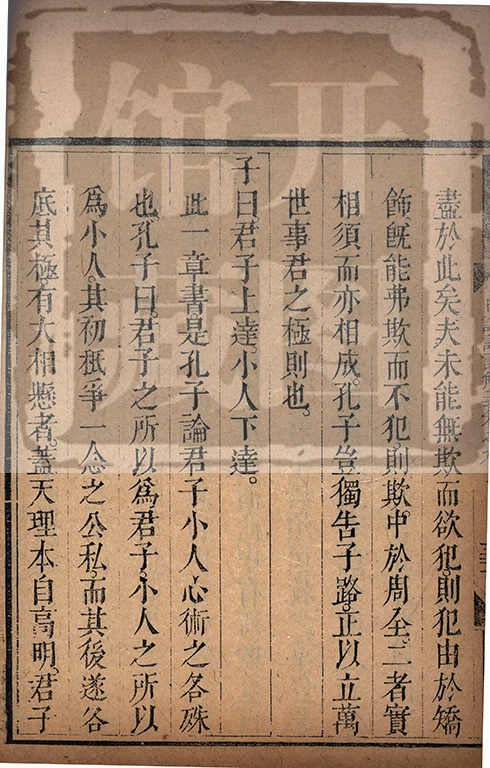 盡於此矣夫未能無欺而欲犯則犯由於矯
飾既能弗欺而不犯則欺中於周全二者實
相須而亦相成孔子豈獨告子路正以立萬
世事君之極則也。
子曰君子上達小人下達。
此一章書是孔子論君子小人心術之各殊
也孔子曰君子之所以為君子小人之所以
為小人其初祇爭一念之公私而其後遂各
底其極有大相懸者蓋天理本自高明君子